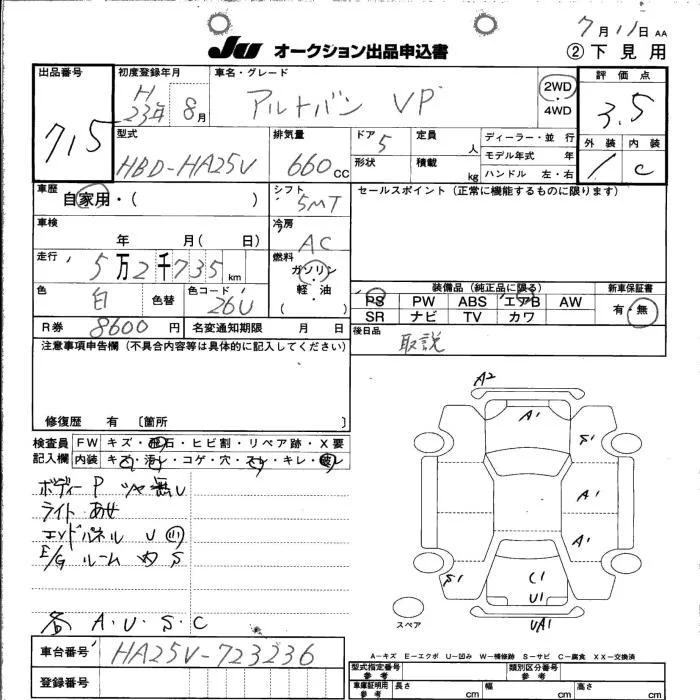 7月11日 AA
JU オークション出品申込書 ②下見用
出品番号 715
初度登録年月 H 23年 8月
車名・グレード アルトバン VP
2WD
4WD
評価点 3.5
外装 内装
1 C
型式 HBD-HA25V
排気量 660cc
ドア 5
形状
定員 人
積載 kg
ディーラー・並 行
モデル年式 年
ハンドル 左・右
車歴 自家用・( )
シフト 5MT
セールスポイント(正常に機能するものに限ります)
車検 年 月( 日)
冷房 AC
走行 5万2千735km
燃料 ガソリン・軽・油 ( )
色 白 色替 色コード 26U
装備品(純正品に限る)
PS PW ABS エアB AW
SR ナビ TV カワ
新車保証書 有・無
R券 8600円 名変通知期限 月 日
後日品 取説
注意事項申告欄(不具合内容等は具体的に記入してください)
修復歴 有 [箇所 ]
検査員記入欄
FW キズ・飛石・ヒビ割・リペア跡・X要
内装 キズ・汚れ・コゲ・穴・スレ・キレ・破レ
ボディー P ツヤ無し
ライト あせ
エンドパネル U
E/G ルーム 内 S
各 A.U.S.C
A2
A1
S1
A1
A1
S1
C1
U1
UA1
スペア
A-キズ E-エクボ U-凹み W-補修跡 S-サビ C-腐食 XX-交換済
車台番号 HA25V-723236
登録番号
型式指定番号 参考 類別区分番号 参考
車庫証明用 参考 長さ cm 幅 cm 高さ cm